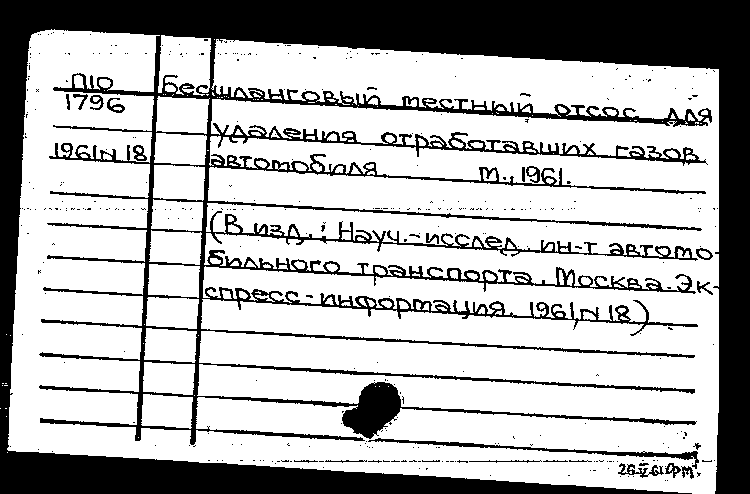 П10
1796
1961 N 18
Бесшланговый местный отсос для
удаления отработавших газов
автомобиля. М., 1961.
(В изд.: Науч.-исслед. ин-т автомо-
бильного транспорта. Москва. Эк-
спресс-информация. 1961, N 18)